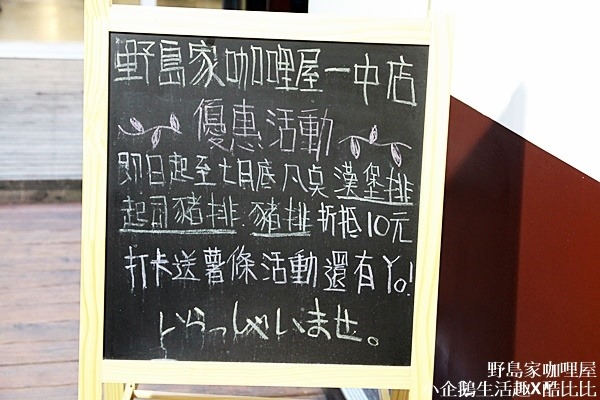 野島家咖哩屋一中店
優惠活動
即日起至七月底凡點漢堡排
起司豬排.豬排折抵10元
打卡送薯條活動還有Yo!
いらっしゃいませ。
野島家咖哩屋
小企鵝生活趣X酷比比